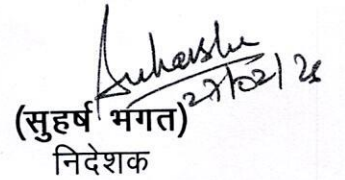 Suharshu
27/02/26
(सुहर्ष भगत)
निदेशक